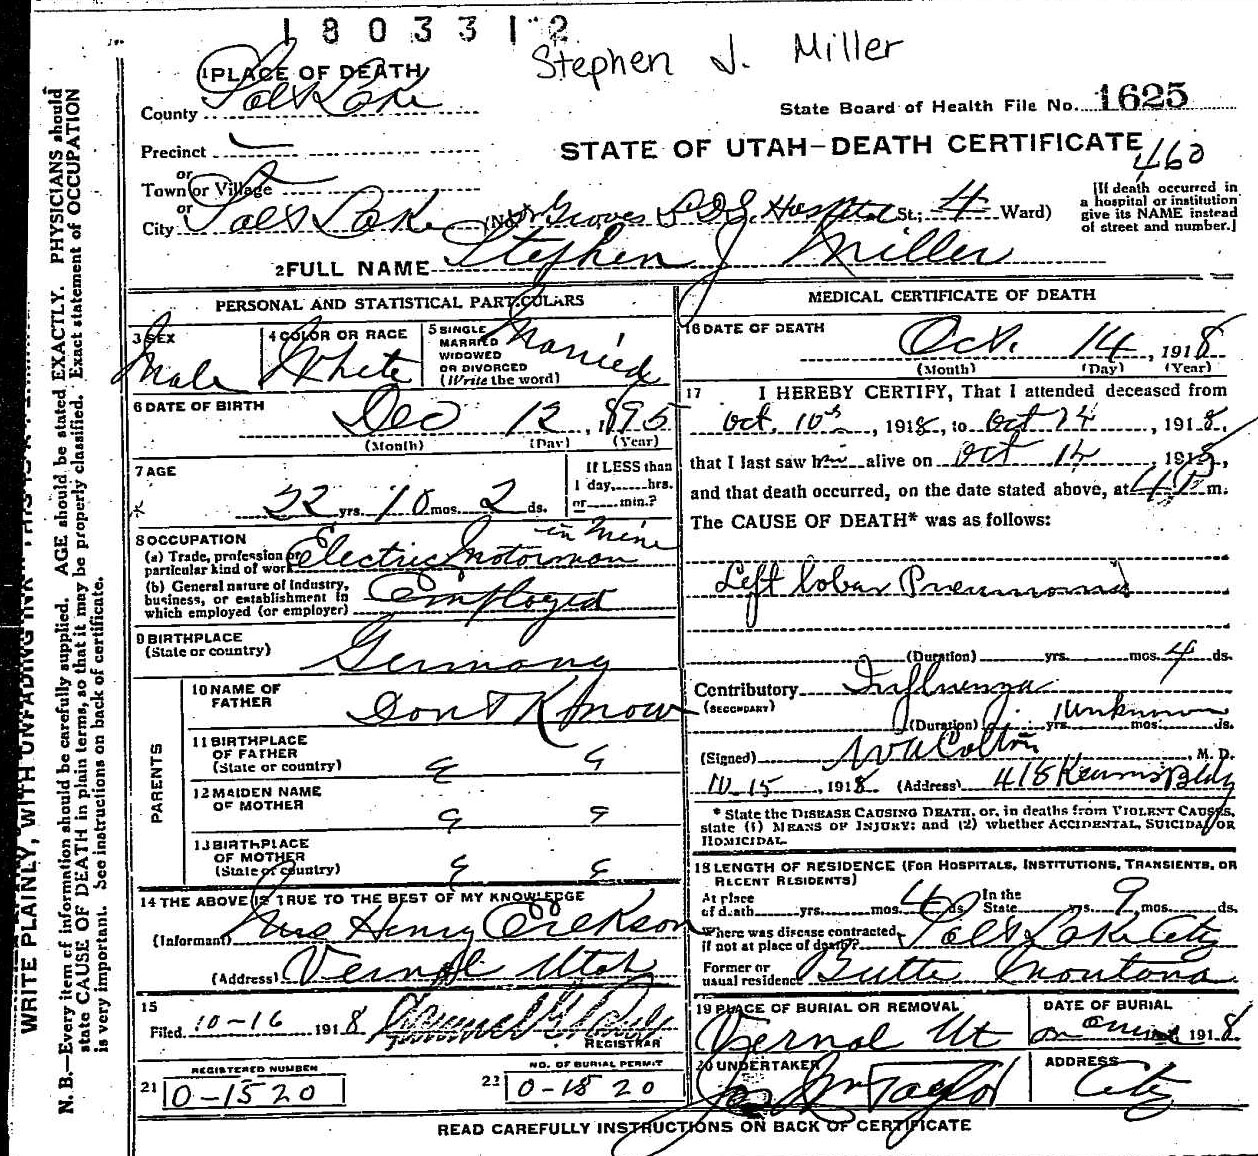 1803312
Stephen J. Miller
1 PLACE OF DEATH
County Salt Lake
State Board of Health File No. 1625
Precinct
STATE OF UTAH—DEATH CERTIFICATE
460
or
Town or Village
or
City Salt Lake (No. Groves L.D.S. Hospital St.; 4 Ward)
[If death occurred in
a hospital or institution
give its NAME instead
of street and number.]
2 FULL NAME Stephen J Miller
PERSONAL AND STATISTICAL PARTICULARS
3 SEX
Male
4 COLOR OR RACE
White
5 SINGLE
MARRIED
WIDOWED
OR DIVORCED
(Write the word)
Married
6 DATE OF BIRTH
Dec 12, 1895
(Month) (Day) (Year)
7 AGE
22 yrs. 10 mos. 2 ds.
If LESS than
1 day, hrs.
or min.?
8 OCCUPATION
(a) Trade, profession or
particular kind of work Electric Motorman in Mine
(b) General nature of industry,
business, or establishment in
which employed (or employer) Employed
9 BIRTHPLACE
(State or country)
Germany
PARENTS
10 NAME OF
FATHER
Dont Know
11 BIRTHPLACE
OF FATHER
(State or country)
12 MAIDEN NAME
OF MOTHER
13 BIRTHPLACE
OF MOTHER
(State or country)
14 THE ABOVE IS TRUE TO THE BEST OF MY KNOWLEDGE
(Informant) Mrs Henry Erekson
(Address) Vernal Utah
15
Filed 10-16 1918
REGISTRAR
REGISTERED NUMBER
21 0-1520
NO. OF BURIAL PERMIT
22 0-1520
MEDICAL CERTIFICATE OF DEATH
16 DATE OF DEATH
Oct. 14, 1918
(Month) (Day) (Year)
17 I HEREBY CERTIFY, That I attended deceased from
Oct. 10, 1918, to Oct 14, 1918,
that I last saw him alive on Oct 14, 1918,
and that death occurred, on the date stated above, at m.
The CAUSE OF DEATH* was as follows:
Left lobar Pneumonia
(Duration) yrs. mos. 4 ds.
Contributory Influenza
(SECONDARY)
(Duration) yrs. Unknown mos. ds.
(Signed) W A Colton M. D.
10-15, 1918 (Address) 418 Kearns Bldg
* State the DISEASE CAUSING DEATH, or, in deaths from VIOLENT CAUSES,
state (1) MEANS OF INJURY; and (2) whether ACCIDENTAL, SUICIDAL, OR
HOMICIDAL.
18 LENGTH OF RESIDENCE (FOR HOSPITALS, INSTITUTIONS, TRANSIENTS, OR
RECENT RESIDENTS)
At place
of death yrs. mos. 4 ds.
In the
State yrs. 9 mos. ds.
Where was disease contracted,
if not at place of death? Salt Lake City
Former or
usual residence Butte Montana
19 PLACE OF BURIAL OR REMOVAL
Vernal Ut
DATE OF BURIAL
1918
20 UNDERTAKER
Jos Wm Taylor
ADDRESS
City
READ CAREFULLY INSTRUCTIONS ON BACK OF CERTIFICATE
N. B.—Every item of information should be carefully supplied. AGE should be stated EXACTLY. PHYSICIANS should
state CAUSE OF DEATH in plain terms, so that it may be properly classified. Exact statement of OCCUPATION
is very important. See instructions on back of certificate.
WRITE PLAINLY, WITH UNFADING INK